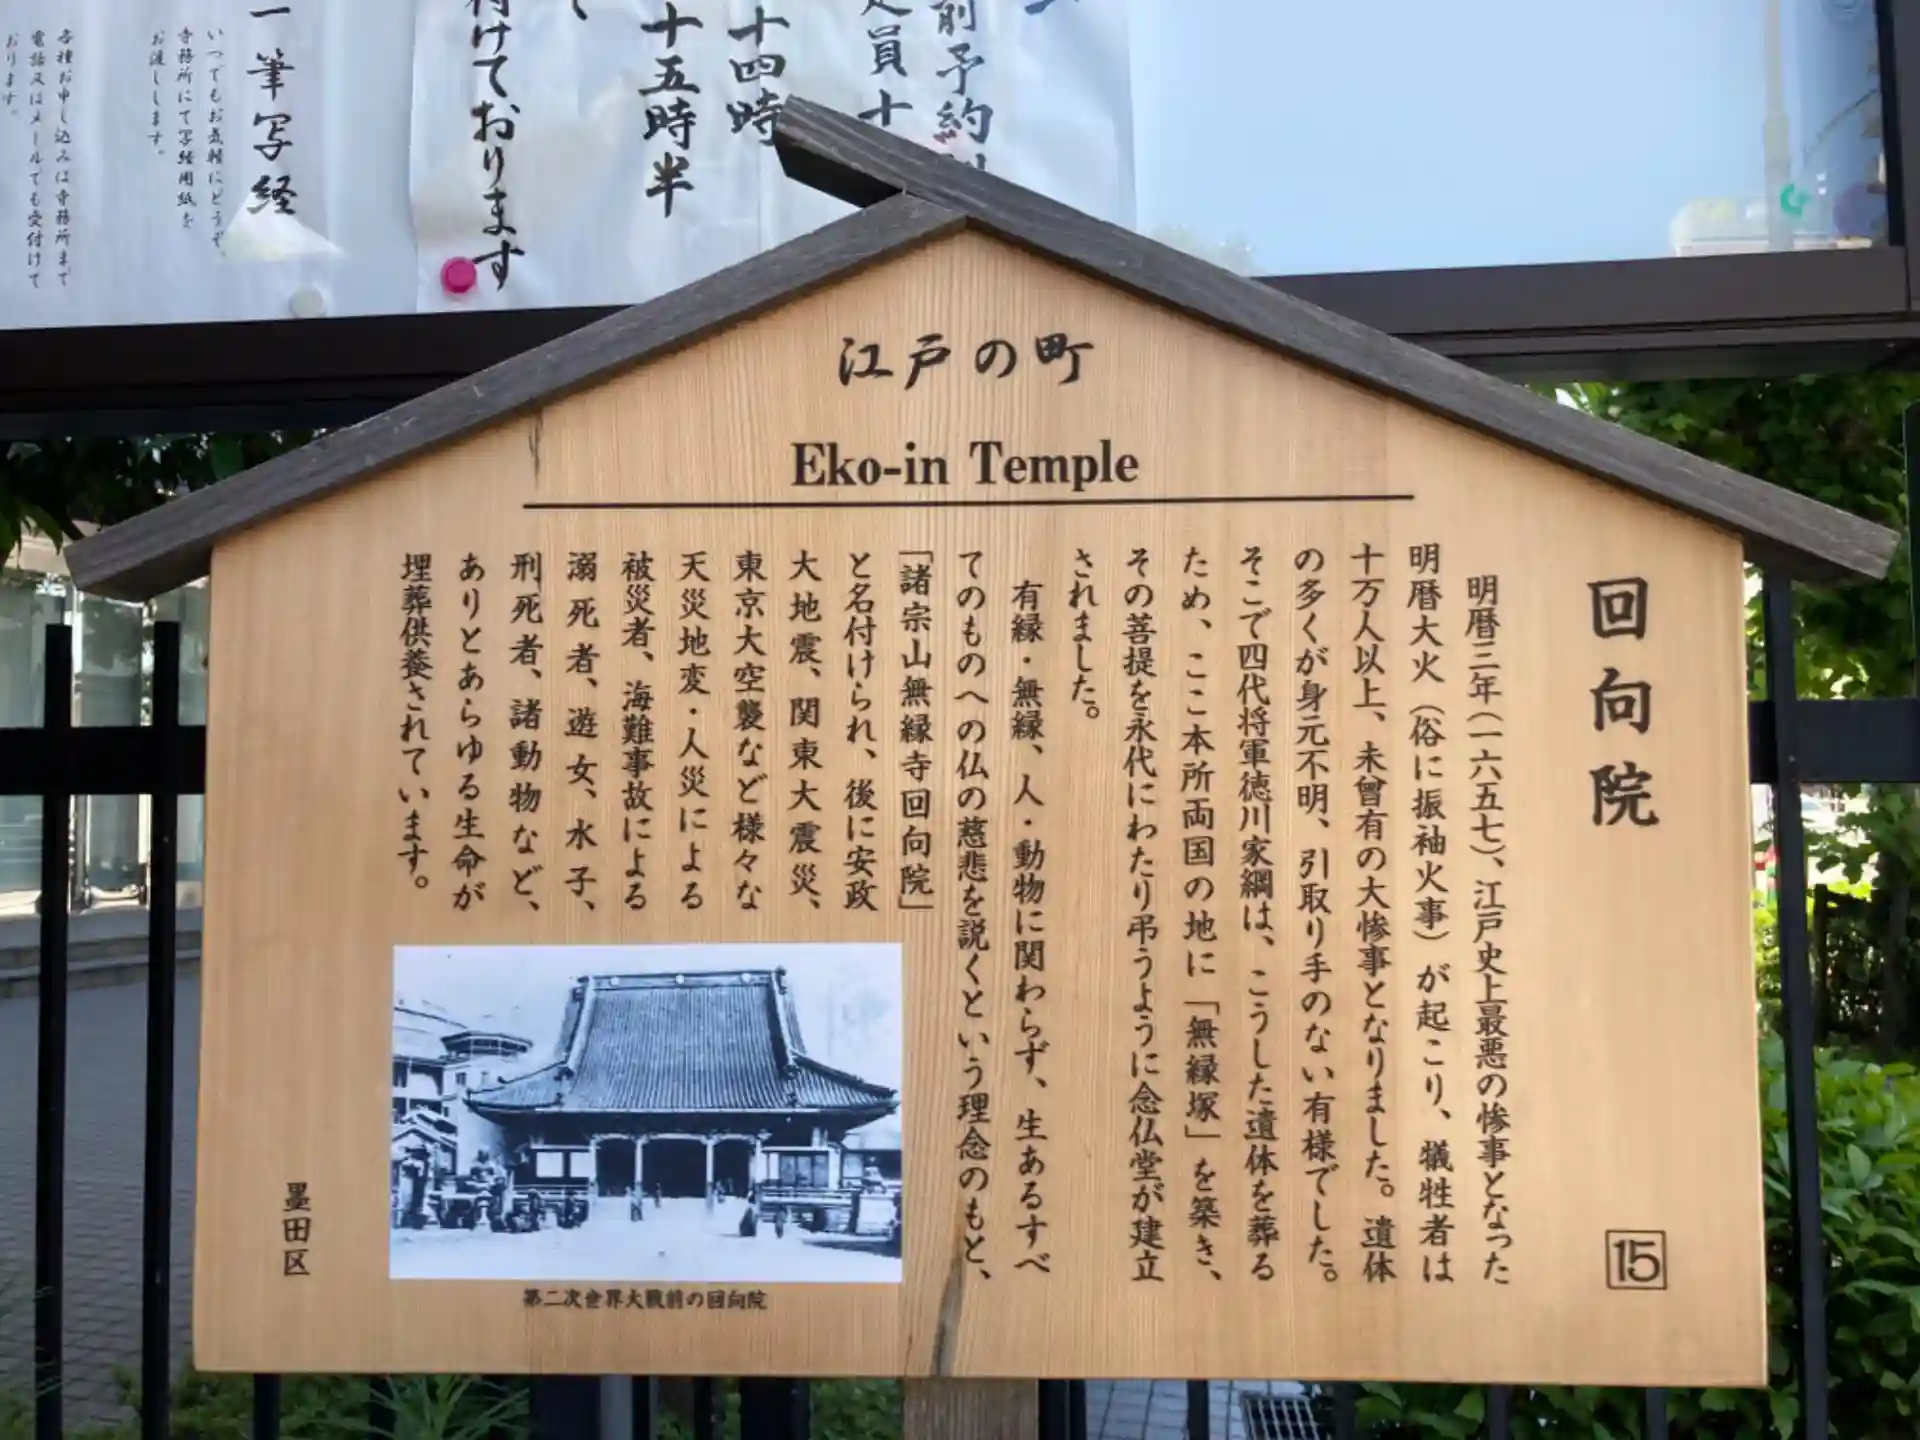 江戸の町
Eko-in Temple
回向院
明暦三年(一六五七)、江戸史上最悪の惨事となった
明暦大火(俗に振袖火事)が起こり、犠牲者は
十万人以上、未曾有の大惨事となりました。遺体
の多くが身元不明、引取り手のない有様でした。
そこで四代将軍徳川家綱は、こうした遺体を葬る
ため、ここ本所両国の地に「無縁塚」を築き、
その菩提を永代にわたり弔うように念仏堂が建立
されました。
有縁・無縁、人・動物に関わらず、生あるすべ
てのものへの仏の慈悲を説くという理念のもと、
「諸宗山無縁寺回向院」
と名付けられ、後に安政
大地震、関東大震災、
東京大空襲など様々な
天災地変・人災による
被災者、海難事故による
溺死者、遊女、水子、
刑死者、諸動物など、
ありとあらゆる生命が
埋葬供養されています。
第二次世界大戦前の回向院
墨田区
15
前予約
員十
十四時
十五時半
付けております
一筆写経
いつでもお気軽にどうぞ
寺務所にて写経用紙を
お渡しします。
各種お申し込みは寺務所まで
電話又はメールでも受付けて
おります。